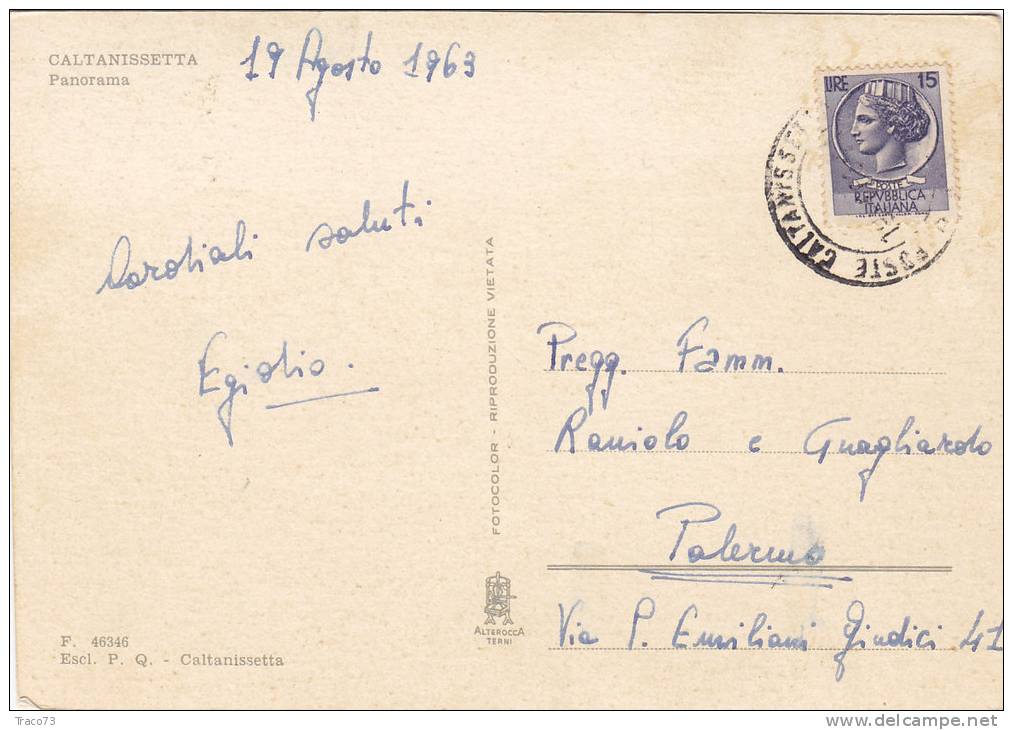 CALTANISSETTA
Panorama
19 Agosto 1963
LIRE 15
POSTE
REPVBBLICA
ITALIANA
POSTE CALTANISSET
Cordiali saluti
Egidio.
FOTOCOLOR - RIPRODUZIONE VIETATA
Pregg. Famm.
Raniolo e Guagliardo
Palermo
Via P. Emiliani Giudici 41
ALTEROCCA
TERNI
F. 46346
Escl. P. Q. - Caltanissetta
Traco73
www.delcampe.net